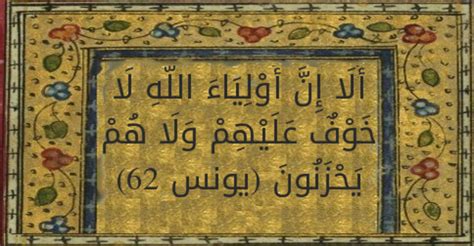 ألَا إِنَّ أوْلِيَاءَ اللّهِ لَا
خَوْفٌ عَلَيْهِمْ وَلَا هُمْ
يَحْزَنُونَ (يونس 62)